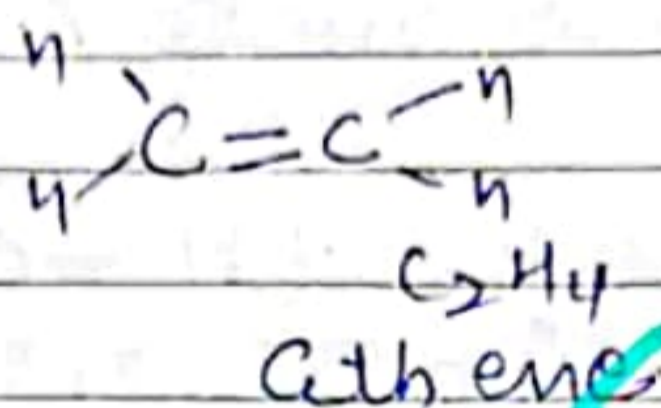 H H
C=C
H H
C2H4
Ethene